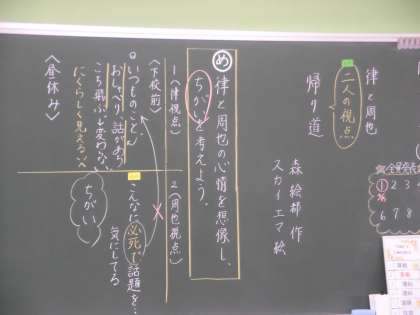 律と周也
二人の視点
帰り道
森絵都 作
スカイエマ 絵
め 律と周也の心情を想像し、
ちがいを考えよう。
1(律視点)
2(周也視点)
〈下校前〉
いつものことん
おしゃべり、話があち
こち飛ぶ、変わらない
にくらしく見える
〈昼休み〉
こんなに必死で話題を…
気にしてる
ちがい
1 2 3
6 7 8